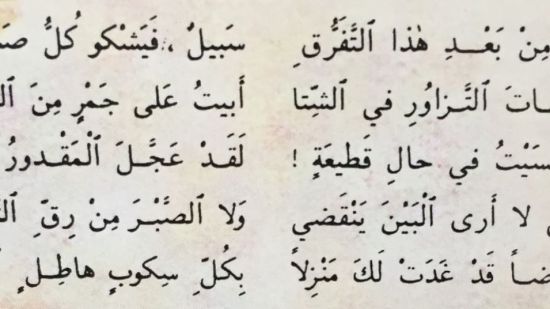 مِنْ بَعْـدِ هٰذا ٱلتَّفَرُّقِ سَبيلٌ ، فَيَشْكو كُلُّ
ٱلتَّـزاوُرِ في ٱلشِّتا أَبيتُ عَلى جَمْرٍ مِنَ
في حالِ قَطيعَةٍ ! لَقَـدْ عَجَّـلَ ٱلْمَقْـدورُ
لا أَرى ٱلْبَيْنَ يَنْقَضي وَلا ٱلصَّبْـرَ مِنْ رِقِّ
قَدْ غَدَتْ لَكَ مَنْزِلاً بِكُلِّ سِكوبٍ هاطِـلٍ